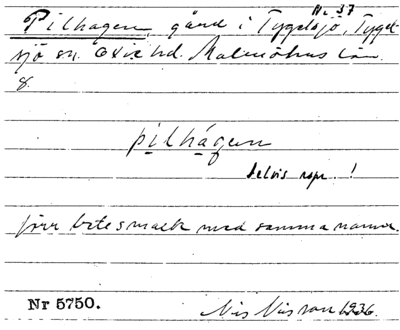 Nr 37
Pilhagen gård i Tygelsjö, Tygel-
sjö sn. Oxie hd. Malmöhus län.
8.
pilhágen
delvis rspr. !
förr betesmark med samma namn.
Nr 5750. Nils Nilsson 1936.